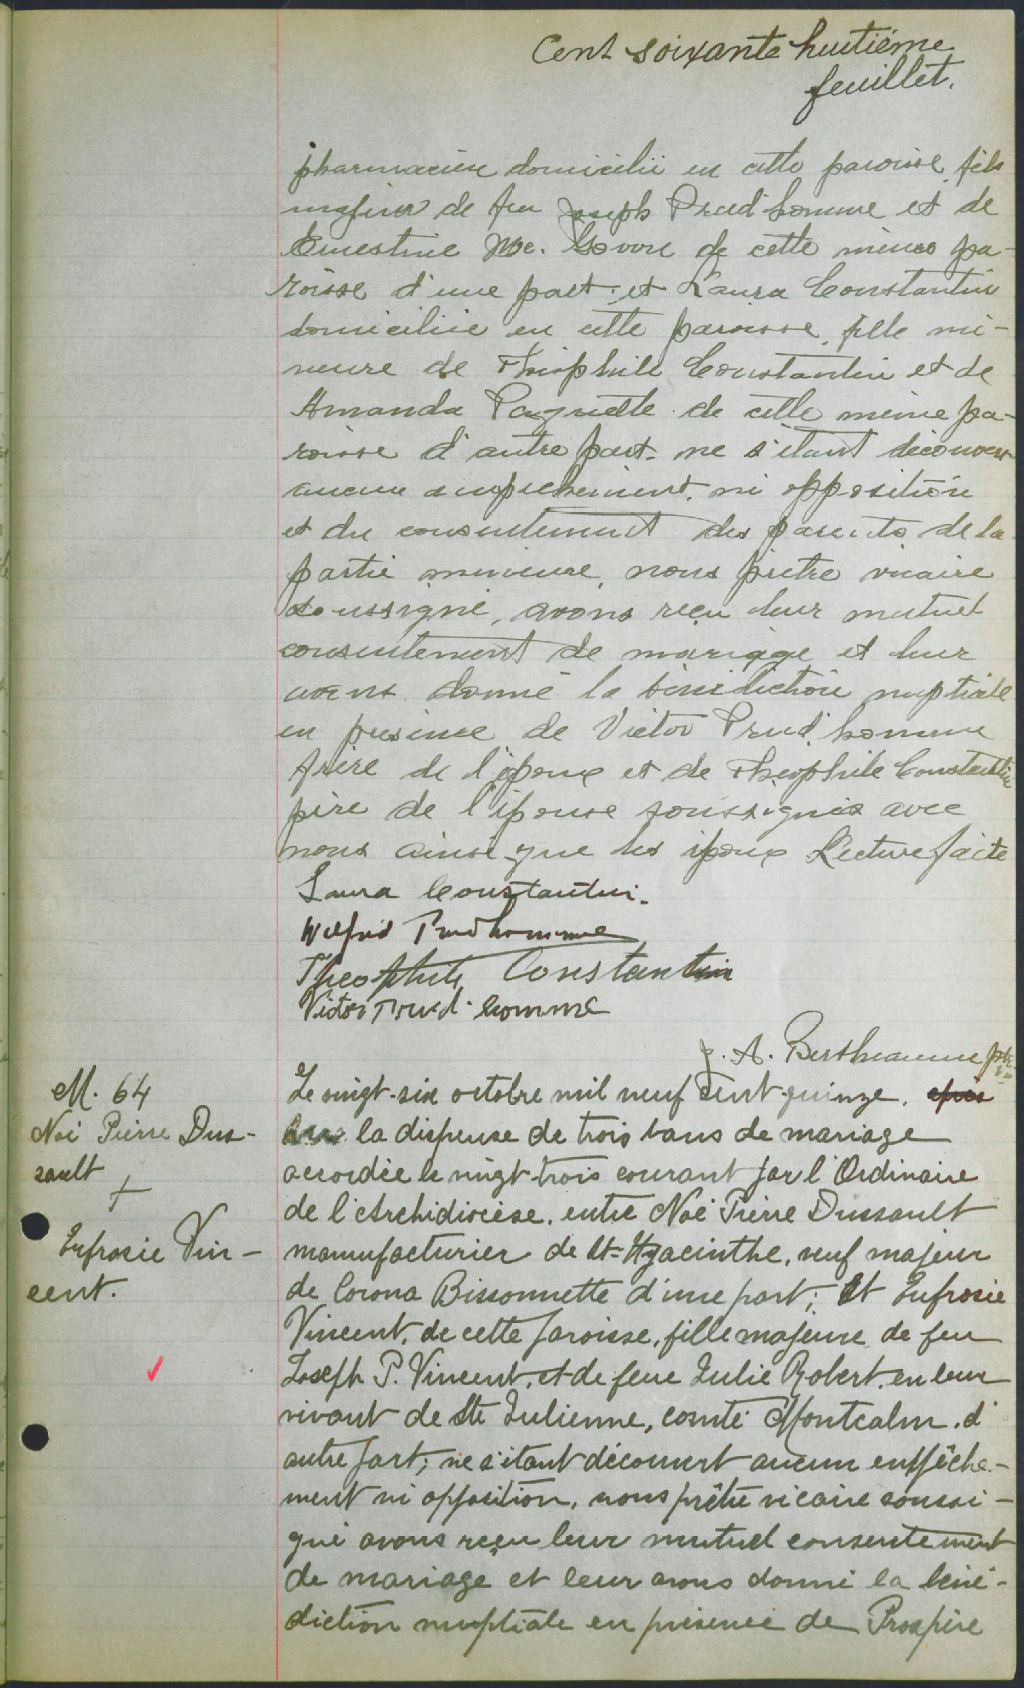 Cent soixante huitième
feuillet.
pharmacien domicilié en cette paroisse, fils
majeur de feu Joseph Prud'homme et de
Ernestine Mc. Govern de cette même pa-
roisse d'une part; et Laura Constantin
domiciliée en cette paroisse, fille mi-
neure de Théophile Constantin et de
Amanda Paquette de cette même pa-
roisse d'autre part. ne s'étant découvert
aucun empêchement, ni opposition
et du consentement des parents de la
partie mineure, nous prêtre vicaire
soussigné, avons reçu leur mutuel
consentement de mariage et leur
avons donné la bénédiction nuptiale
en présence de Victor Prud'homme
frère de l'époux et de Théophile Constantin
père de l'épouse soussignés avec
nous ainsi que les époux Lecture faite
Laura Constantin.
Wilfrid Prudhomme
Theophile Constantin
Victor Prud'homme
J. A. Berthiaume ptre
M. 64
Noé Pierre Dus-
sault
+
Eufrosie Vin-
cent.
Le vingt-six octobre mil neuf cent quinze, après
la dispense de trois bans de mariage
accordée le vingt-trois courant par l'Ordinaire
de l'Archidiocèse, entre Noé Pierre Dussault
manufacturier de St-Hyacinthe, veuf majeur
de Corona Bissonnette d'une part; Et Eufrosie
Vincent, de cette paroisse, fille majeure de feu
Joseph P. Vincent, et de feue Julie Robert, en leur
vivant de Ste Julienne, comté Montcalm, d'
autre part; ne s'étant découvert aucun empêche-
ment ni opposition, nous prêtre vicaire soussi-
gné avons reçu leur mutuel consentement
de mariage et leur avons donné la béné-
diction nuptiale en présence de Prospère